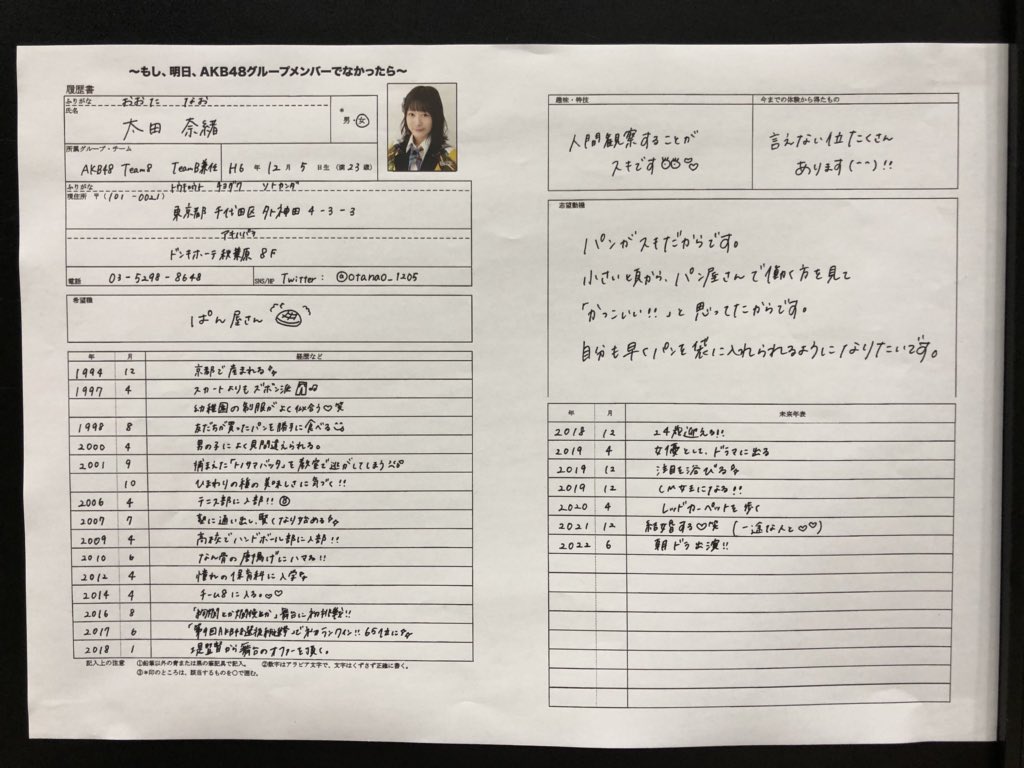 〜もし、明日、AKB48グループメンバーでなかったら〜
履歴書
ふりがな おおた なお
氏名 太田 奈緒
* 男・女
所属グループ・チーム
AKB48 Team8 TeamB兼任
H6 年 12 月 5 日生 (満 23 歳)
ふりがな トウキョウト チヨダク ソトカンダ
現住所 〒(101-0021)
東京都 千代田区 外神田 4-3-3
アキハバラ
ドンキホーテ秋葉原 8F
電話 03-5298-8648
SNS/HP Twitter: @otanao_1205
希望職
ぱん屋さん
年 月 経歴など
1994 12 京都で産まれる
1997 4 スカートよりもズボン派
幼稚園の制服がよく似合う♡笑
1998 8 友だちが買ったパンを勝手に食べる
2000 4 男の子によく見間違えられる。
2001 9 捕まえた「トノサマバッタ」を教室で逃がしてしまう
10 ひまわりの種の美味しさに気づく!!
2006 4 テニス部に入部!!
2007 7 塾に通い出し、賢くなり始める
2009 4 高校でハンドボール部に入部!!
2010 6 なん骨の唐揚げにハマる!!
2012 4 憧れの保育科に入学
2014 4 チーム8に入る。♡♡
2016 8 舞台に初挑戦!!
2017 6 「第9回AKB48選抜総選挙」で初ランクイン!! 65位に
2018 1 舞台のオファーを頂く。
記入上の注意 ①鉛筆以外の青または黒の筆記具で記入。 ②数字はアラビア文字で、文字はくずさず正確に書く。
③*印のところは、該当するものを○で囲む。
趣味・特技
人間観察することが
スキです♡
今までの体験から得たもの
言えない位たくさん
あります(^^)!!
志望動機
パンがスキだからです。
小さい頃から、パン屋さんで働く方を見て
「かっこいい!!」と思ってたからです。
自分も早くパンを袋に入れられるようになりたいです。
年 月 未来年表
2018 12 24歳迎える!!
2019 4 女優として、ドラマに出る
2019 12 注目を浴びる
2019 12 CM女王になる!!
2020 4 レッドカーペットを歩く
2021 12 結婚する♡笑 (一途な人と♡♡)
2022 6 朝ドラ出演!!